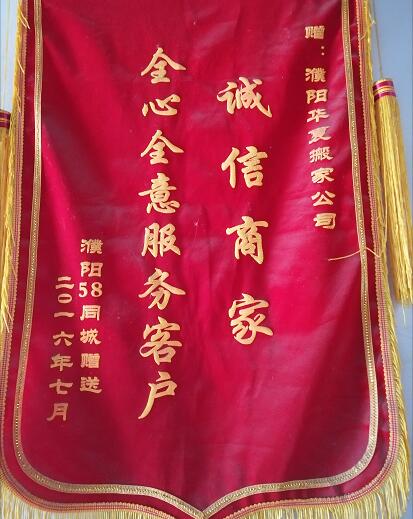 赠：濮阳华夏搬家公司
诚信商家
全心全意服务客户
濮阳58同城赠送
二〇一六年七月